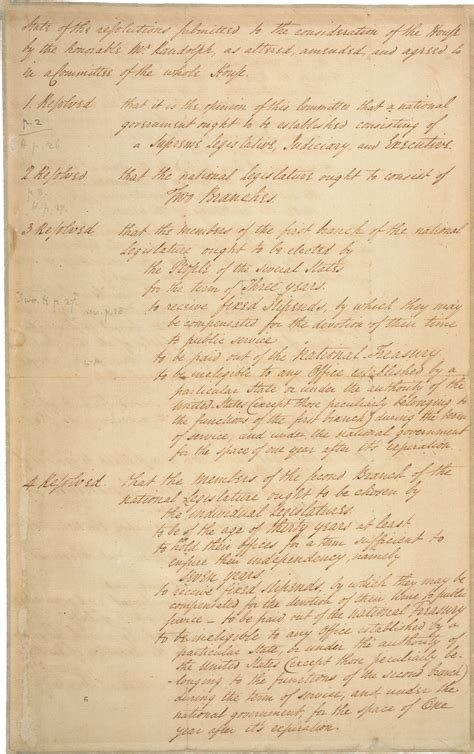 State of the resolutions submitted to the consideration of the House
by the honorable Mr. Randolph, as altered, amended, and agreed to
in a Committee of the whole House.
1. Resolved that it is the opinion of this Committee that a national
p. 2 government ought to be established consisting of
a Supreme Legislative, Judiciary, and Executive.
2. Resolved that the national Legislature ought to consist of
Two Branches.
3. Resolved that the members of the first branch of the national
Legislature ought to be elected by
the People of the several States
for the term of Three years.
to receive fixed stipends, by which they may
be compensated for the devotion of their time
to public service
to be paid out of the National Treasury
to be ineligible to any Office established by a
particular State or under the authority of the
United States (except those peculiarly belonging to
the functions of the first branch) during the term
of service, and under the national government
for the space of one year after its expiration.
4. Resolved. that the members of the second Branch of the
national Legislature ought to be chosen by
the individual Legislatures.
to be of the age of thirty years at least
to hold their offices for a term sufficient to
ensure their independency, namely
seven years.
to receive fixed stipends, by which they may be
compensated for the devotion of their time to public
service — to be paid out of the National Treasury
to be ineligible to any Office established by a
particular State, or under the authority of
the United States (except those peculiarly be-
longing to the functions of the second branch)
during the term of service, and under the
national government, for the space of One
year after its expiration.